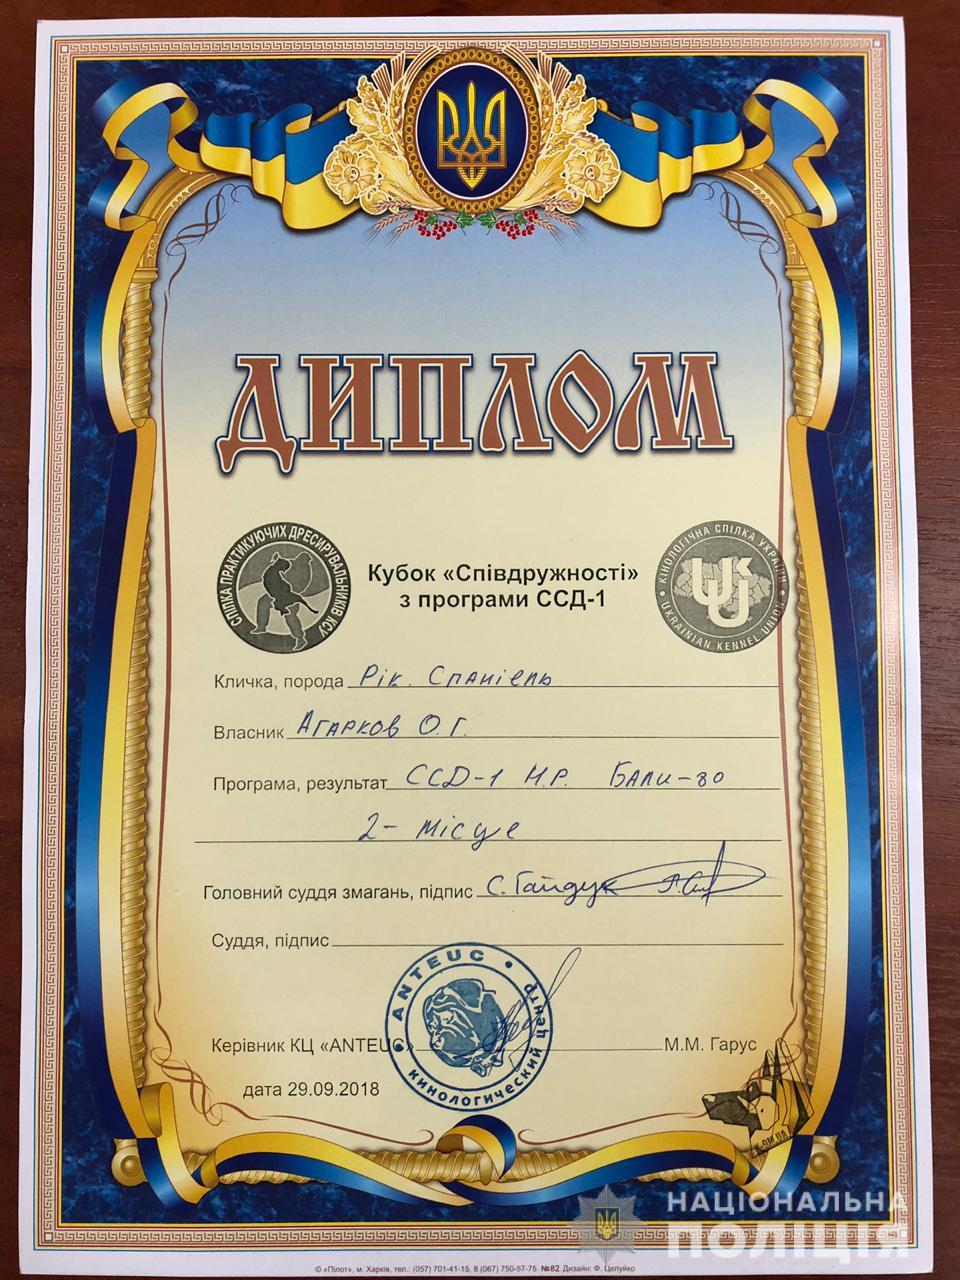 ДИПЛОМ
СПІЛКА ПРАКТИКУЮЧИХ ДРЕСИРУВАЛЬНИКІВ КСУ
Кубок «Співдружності»
з програми ССД-1
КІНОЛОГІЧНА СПІЛКА УКРАЇНИ
UKRAINIAN KENNEL UNION
UKU
Кличка, порода Рік. Спаніель
Власник Агарков О.Г.
Програма, результат ССД-1 Н.Р. Бали-80
2- місце
Головний суддя змагань, підпис С. Гайдук
Суддя, підпис
ANTEUC
КИНОЛОГИЧЕСКИЙ ЦЕНТР
Керівник КЦ «ANTEUC» М.М. Гарус
дата 29.09.2018
НАЦІОНАЛЬНА
ПОЛІЦІЯ
© «Пілот», м. Харків, тел.: (057) 701-41-15, 8 (067) 750-57-75. №82 Дизайн: Ф. Целуйко